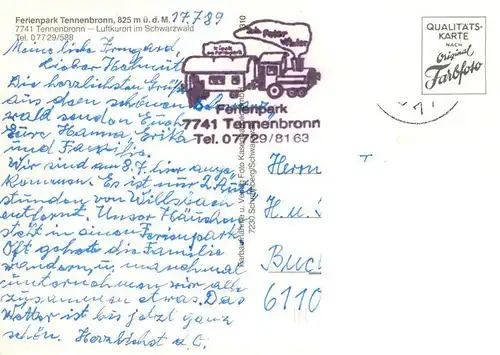 Ferienpark Tennenbronn, 825 m ü. d. M.
7741 Tennenbronn – Luftkurort im Schwarzwald
Tel. 07729/588
17.7.89
Meine liebe Irmgard,
lieber Helmut
Die herzlichsten Grüße
aus dem schönen
wald senden Euch
Eure Hanna, Erika
und Familie.
Wir sind am 8.7. hier ange
kommen. Es ist nur 2 Auto
stunden von Willsbach
entfernt. Unser Häuschen
steht in einem Ferienpark.
Oft geht die Familie
wandern, manchmal
unternehmen wir alle
zusammen etwas. Das
Wetter ist bis jetzt ganz
schön. Herzlichst
Peter
Winter
Ferienpark
7741 Tennenbronn
Tel. 07729/8163
QUALITÄTS-
KARTE
NACH
Original
Farbfoto
Herrn
H. u.
Buc
6110